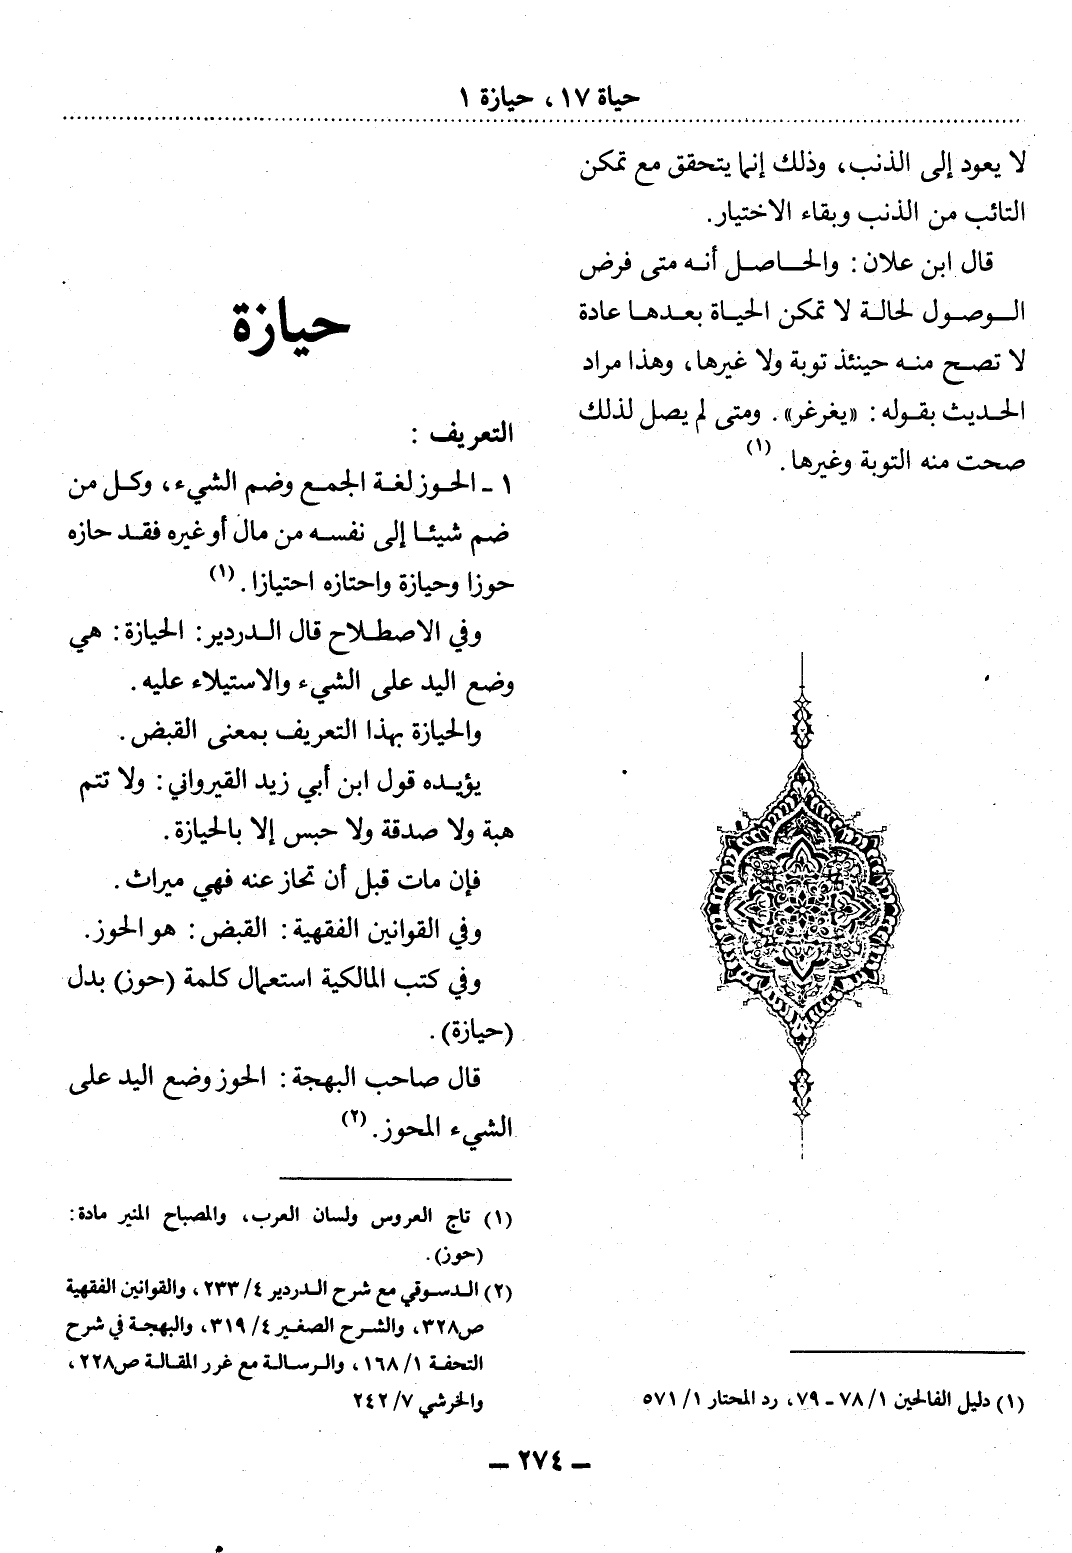 حياة ١٧ ، حيازة ١
لا يعود إلى الذنب، وذلك إنما يتحقق مع تمكن
التائب من الذنب وبقاء الاختيار.
قال ابن علان: والحاصل أنه متى فرض
الوصول لحالة لا تمكن الحياة بعدها عادة
لا تصح منه حينئذ توبة ولا غيرها، وهذا مراد
الحديث بقوله: «يغرغر». ومتى لم يصل لذلك
صحت منه التوبة وغيرها. (١)
(١) دليل الفالحين ١/ ٧٨ ـ ٧٩، رد المحتار ١/ ٥٧١
حيازة
التعريف :
١ ـ الحوز لغة الجمع وضم الشيء، وكل من
ضم شيئا إلى نفسه من مال أو غيره فقد حازه
حوزا وحيازة واحتازه احتيازا. (١)
وفي الاصطلاح قال الدردير: الحيازة: هي
وضع اليد على الشيء والاستيلاء عليه.
والحيازة بهذا التعريف بمعنى القبض.
يؤيده قول ابن أبي زيد القيرواني: ولا تتم
هبة ولا صدقة ولا حبس إلا بالحيازة.
فإن مات قبل أن تحاز عنه فهي ميراث.
وفي القوانين الفقهية: القبض: هو الحوز.
وفي كتب المالكية استعمال كلمة (حوز) بدل
(حيازة).
قال صاحب البهجة: الحوز وضع اليد على
الشيء المحوز. (٢)
(١) تاج العروس ولسان العرب، والمصباح المنير مادة:
(حوز).
(٢) الدسوقي مع شرح الدردير ٤/ ٢٣٣، والقوانين الفقهية
ص٣٢٨، والشرح الصغير ٤/ ٣١٩، والبهجة في شرح
التحفة ١/ ١٦٨، والرسالة مع غرر المقالة ص٢٢٨،
والخرشي ٧/ ٢٤٢
ـ ٢٧٤ ـ